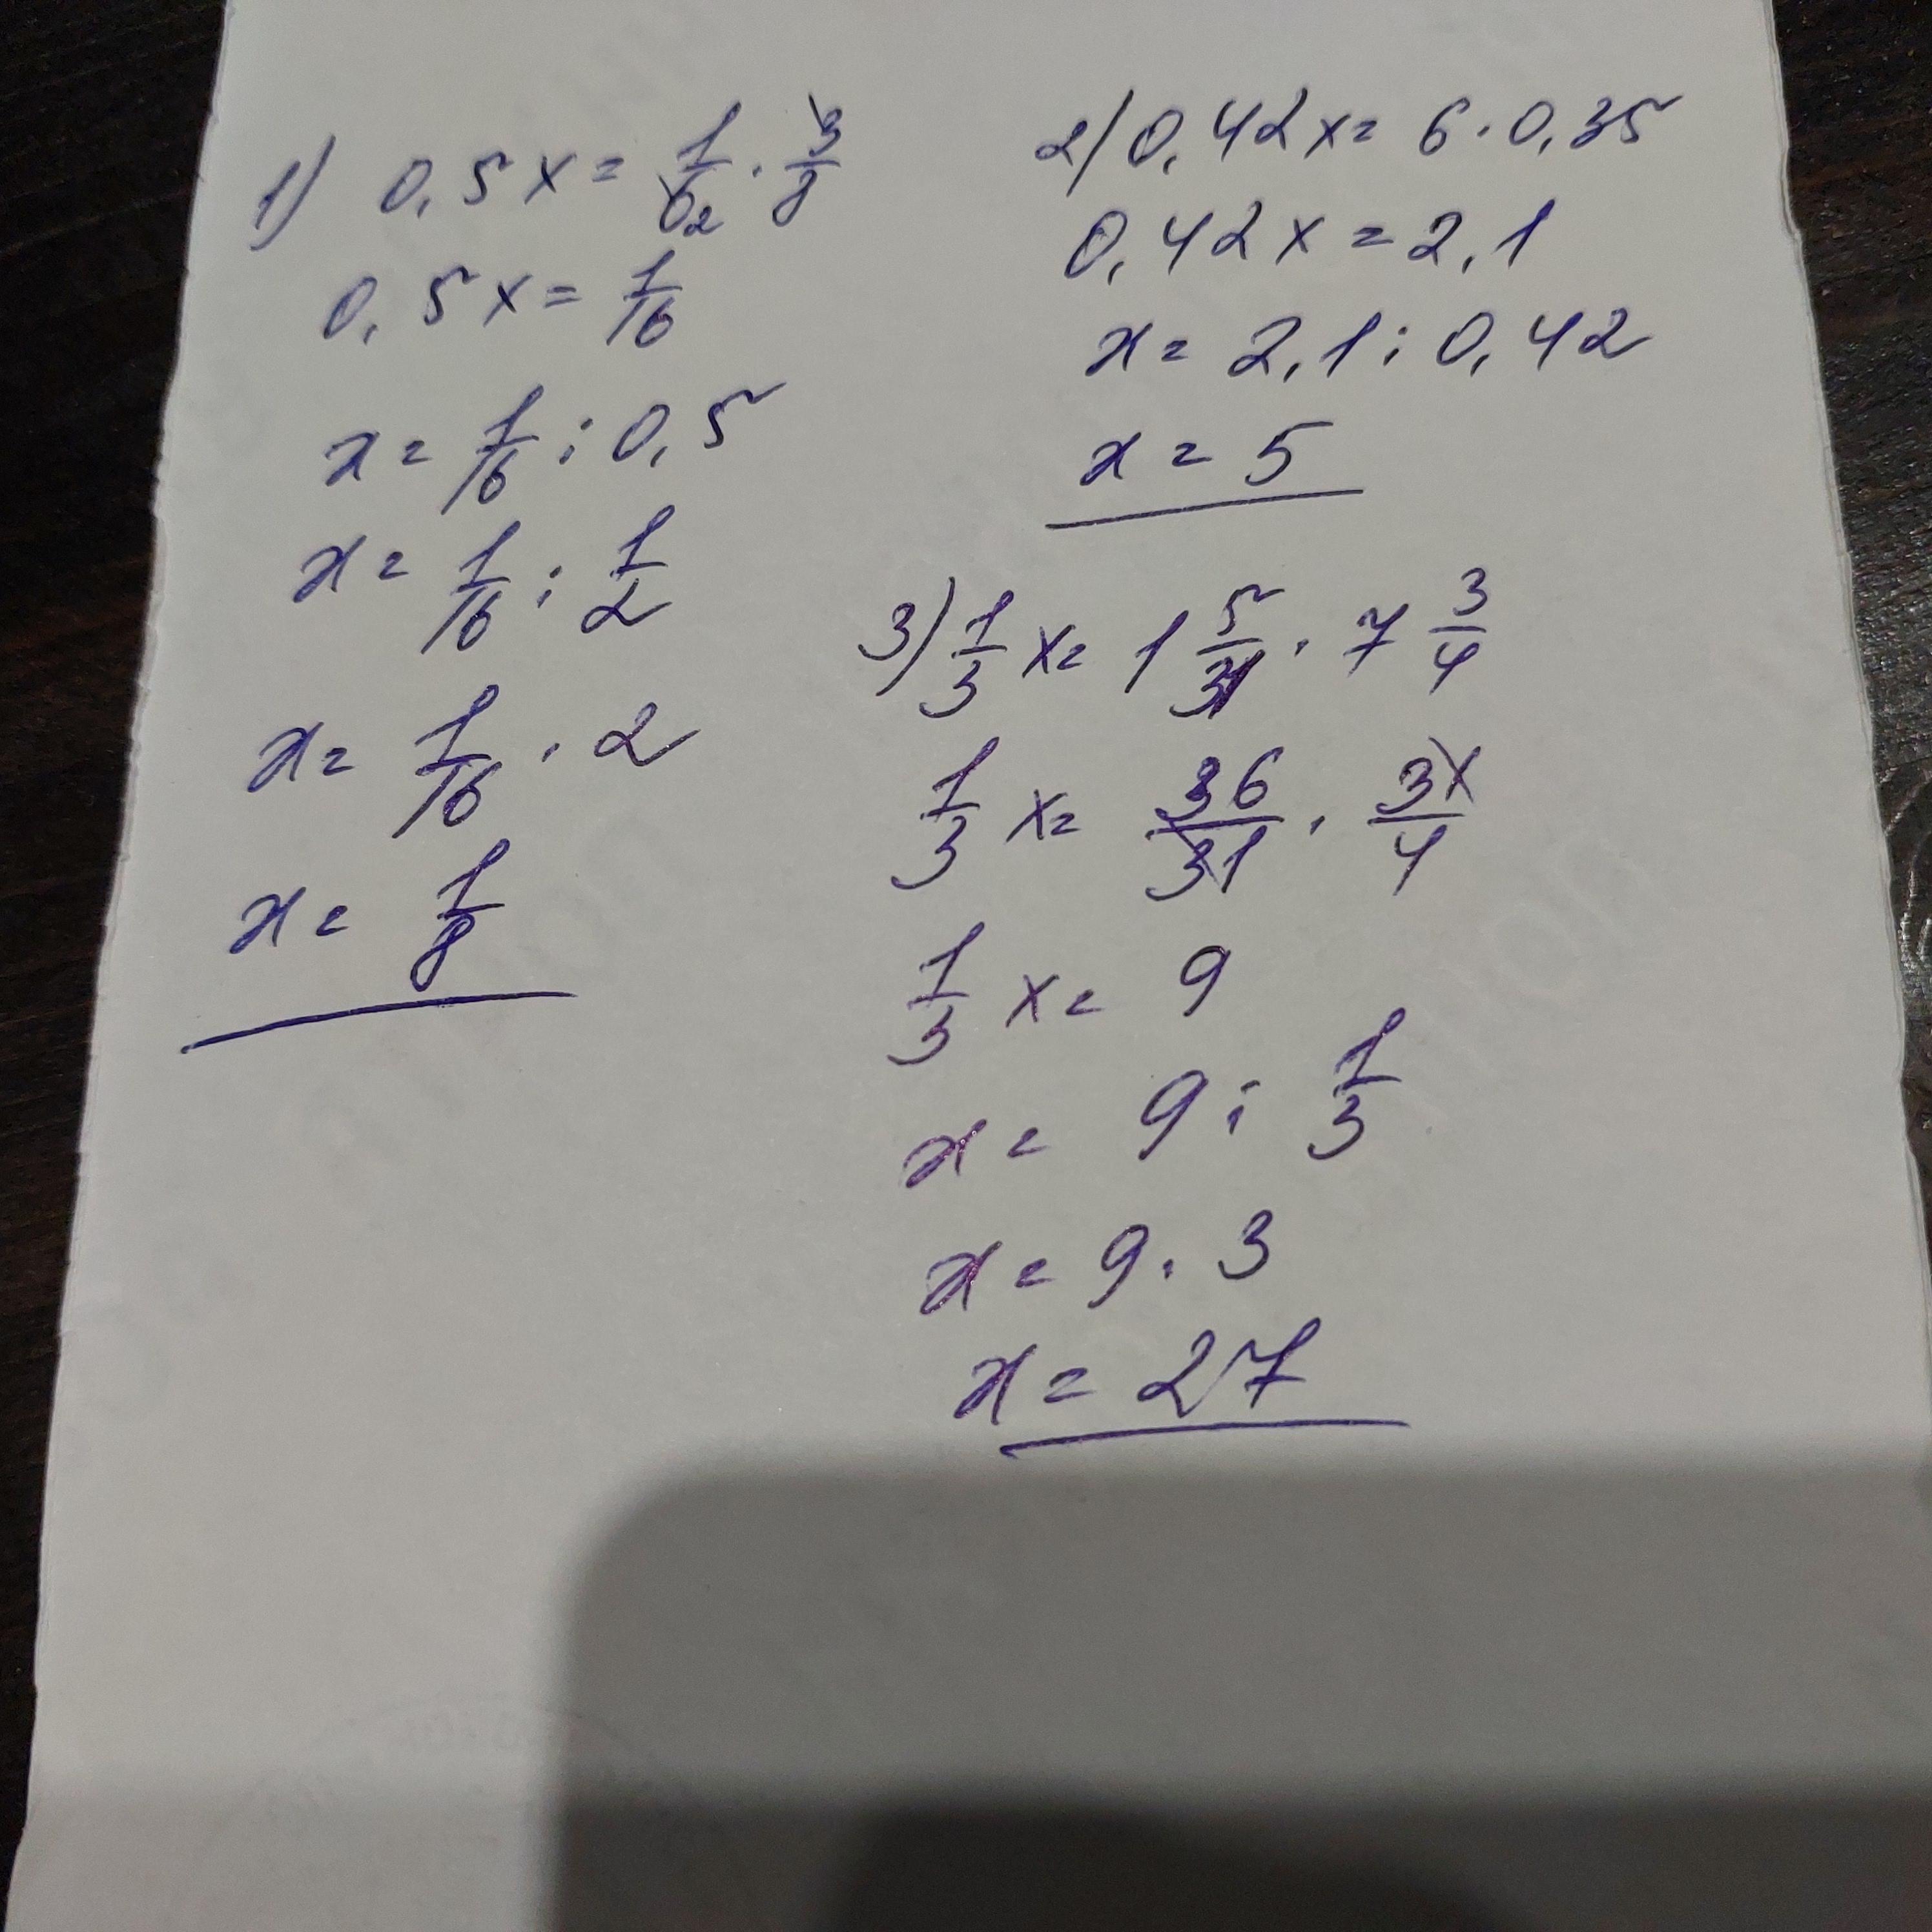 1) 0,5x = 1/6 2 · 3/8
0,5x = 1/16
x = 1/16 : 0,5
x = 1/16 : 1/2
x = 1/16 · 2
x = 1/8
2) 0,42x = 6 · 0,35
0,42x = 2,1
x = 2,1 : 0,42
x = 5
3) 1/3 x = 1 5/31 · 7 3/4
1/3 x = 36/31 · 31/4
1/3 x = 9
x = 9 : 1/3
x = 9 · 3
x = 27